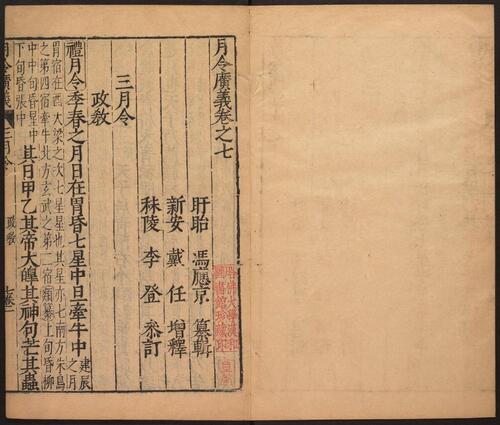 月令廣義卷之七
盱眙 馮應京 纂輯
新安 戴任 增釋
秣陵 李登 叅訂
哈佛大學漢和
圖書館珍藏印
三月令
政教
禮月令季春之月日在胃昏七星中旦牽牛中
建辰
之月
胃宿在西大梁之次七星星也其星亦七南方朱鳥
之第四宿牽牛北方玄武之第二宿額纂上旬昏柳
中中旬昏星中
下旬昏張中
其日甲乙其帝大皥其神句芒其蟲
月令廣義
三月令
政教